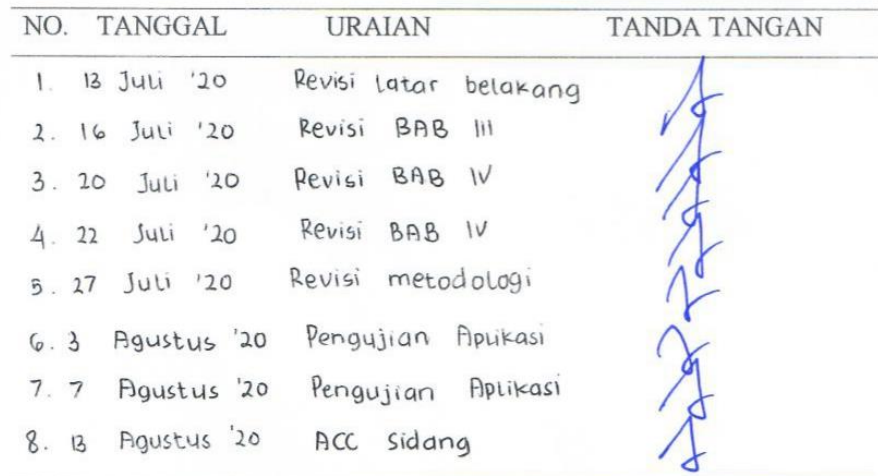 NO. TANGGAL URAIAN TANDA TANGAN
1. 13 Juli '20 Revisi latar belakang
2. 16 Juli '20 Revisi BAB III
3. 20 Juli '20 Revisi BAB IV
4. 22 Juli '20 Revisi BAB IV
5. 27 Juli '20 Revisi metodologi
6. 3 Agustus '20 Pengujian Aplikasi
7. 7 Agustus '20 Pengujian Aplikasi
8. 13 Agustus '20 ACC Sidang